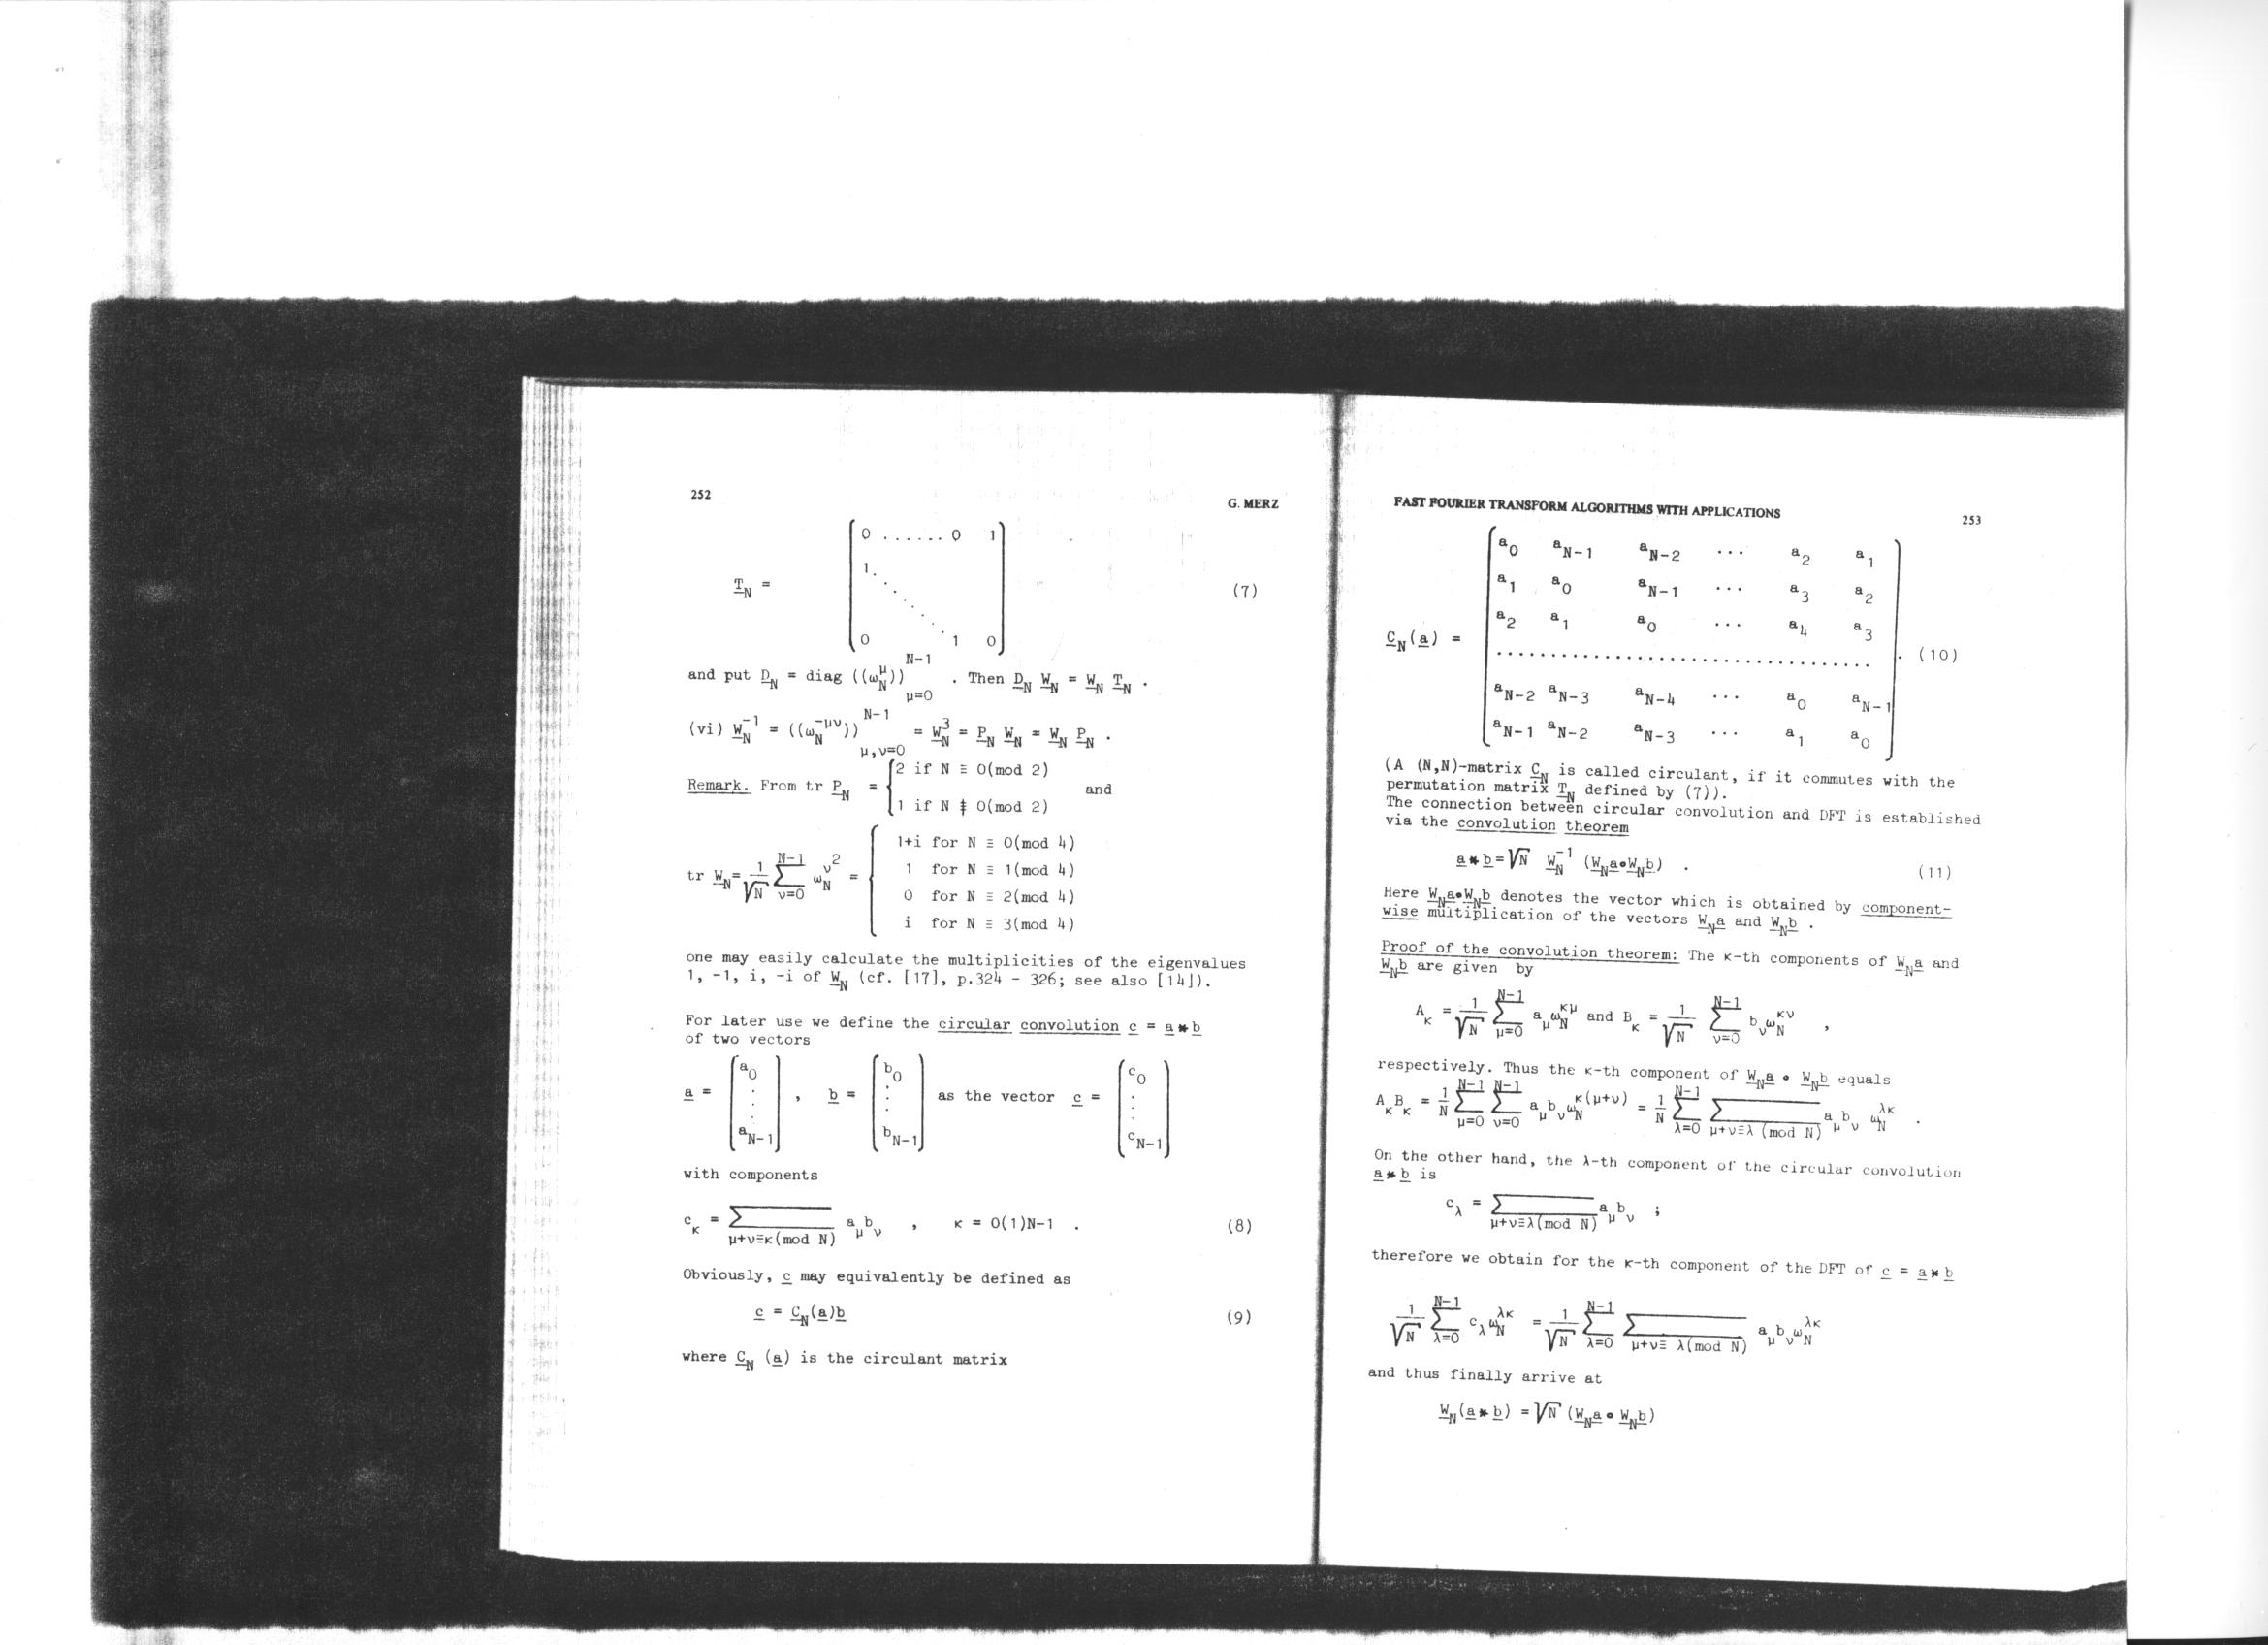 252
G. MERZ
T_N = [ 0 ...... 0 1 ; 1 . . . ; 0 1 0 ] (7)
and put D_N = diag ((ω_N^μ))_{μ=0}^{N-1} . Then D_N W_N = W_N T_N .
(vi) W_N^{-1} = ((ω_N^{-μν}))_{μ,ν=0}^{N-1} = W_N^3 = P_N W_N = W_N P_N .
Remark. From tr P_N = { 2 if N ≡ 0(mod 2) and
1 if N ≢ 0(mod 2)
tr W_N = 1/√N Σ_{ν=0}^{N-1} ω_N^{ν^2} = { 1+i for N ≡ 0(mod 4)
1 for N ≡ 1(mod 4)
0 for N ≡ 2(mod 4)
i for N ≡ 3(mod 4)
one may easily calculate the multiplicities of the eigenvalues
1, -1, i, -i of W_N (cf. [17], p.324 - 326; see also [14]).
For later use we define the circular convolution c = a * b
of two vectors
a = [ a_0 . . . . a_{N-1} ] , b = [ b_0 . . . b_{N-1} ] as the vector c = [ c_0 . . . . c_{N-1} ]
with components
c_κ = Σ_{μ+ν≡κ(mod N)} a_μ b_ν , κ = 0(1)N-1 . (8)
Obviously, c may equivalently be defined as
c = C_N(a)b (9)
where C_N (a) is the circulant matrix
FAST FOURIER TRANSFORM ALGORITHMS WITH APPLICATIONS
253
a_0 a_{N-1} a_{N-2} ... a_2 a_1
a_1 a_0 a_{N-1} ... a_3 a_2
a_2 a_1 a_0 ... a_4 a_3
C_N(a) = ................................... . (10)
a_{N-2} a_{N-3} a_{N-4} ... a_0 a_{N-1}
a_{N-1} a_{N-2} a_{N-3} ... a_1 a_0
(A (N,N)-matrix C_N is called circulant, if it commutes with the
permutation matrix T_N defined by (7)).
The connection between circular convolution and DFT is established
via the convolution theorem
a * b = √N W_N^{-1} (W_N a ∘ W_N b) . (11)
Here W_N a ∘ W_N b denotes the vector which is obtained by component-
wise multiplication of the vectors W_N a and W_N b .
Proof of the convolution theorem: The κ-th components of W_N a and
W_N b are given by
A_κ = 1/√N Σ_{μ=0}^{N-1} a_μ ω_N^{κμ} and B_κ = 1/√N Σ_{ν=0}^{N-1} b_ν ω_N^{κν} ,
respectively. Thus the κ-th component of W_N a ∘ W_N b equals
A_κ B_κ = 1/N Σ_{μ=0}^{N-1} Σ_{ν=0}^{N-1} a_μ b_ν ω_N^{κ(μ+ν)} = 1/N Σ_{λ=0}^{N-1} Σ_{μ+ν≡λ (mod N)} a_μ b_ν ω_N^{λκ} .
On the other hand, the λ-th component of the circular convolution
a * b is
c_λ = Σ_{μ+ν≡λ(mod N)} a_μ b_ν ;
therefore we obtain for the κ-th component of the DFT of c = a * b
1/√N Σ_{λ=0}^{N-1} c_λ ω_N^{λκ} = 1/√N Σ_{λ=0}^{N-1} Σ_{μ+ν≡ λ(mod N)} a_μ b_ν ω_N^{λκ}
and thus finally arrive at
W_N(a * b) = √N (W_N a ∘ W_N b)